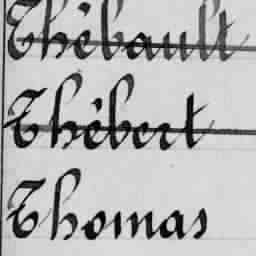 Thébault
Thébert
Thomas